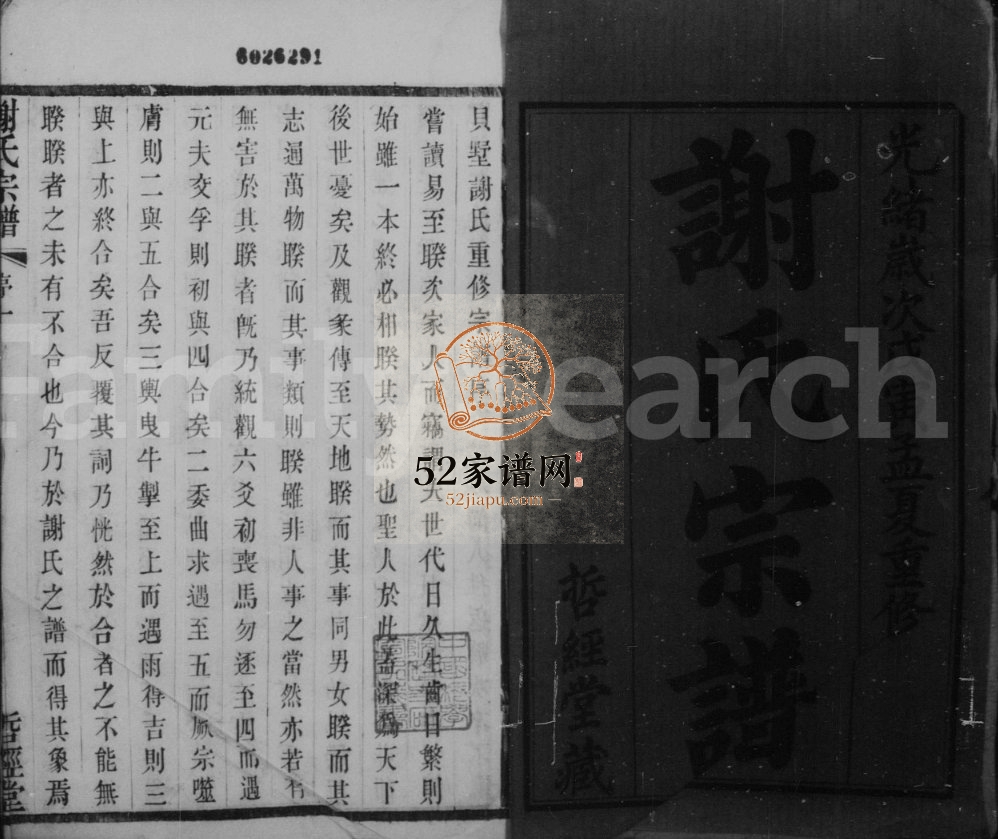 光緒歲次戊戌孟夏重修
謝氏宗譜
哲經堂藏
6026291
貝墅謝氏重修宗譜序
嘗讀易至睽次家人而竊謂夫世代日久生齒日繁則
始雖一本終必相睽其勢然也聖人於此蓋深為天下
後世憂矣及觀彖傳至天地睽而其事同男女睽而其
志通萬物睽而其事類則睽雖非人事之當然亦若有
無害於其睽者旣乃統觀六爻初喪馬勿逐至四而遇
元夫交孚則初與四合矣二委曲求遇至五而厥宗噬
膚則二與五合矣三輿曳牛掣至上而遇雨得吉則三
與上亦終合矣吾反覆其詞乃恍然於合者之不能無
睽睽者之未有不合也今乃於謝氏之譜而得其象焉
謝氏宗譜
序一
哲經堂
FamilySearch
52家谱网
52jiapu.com